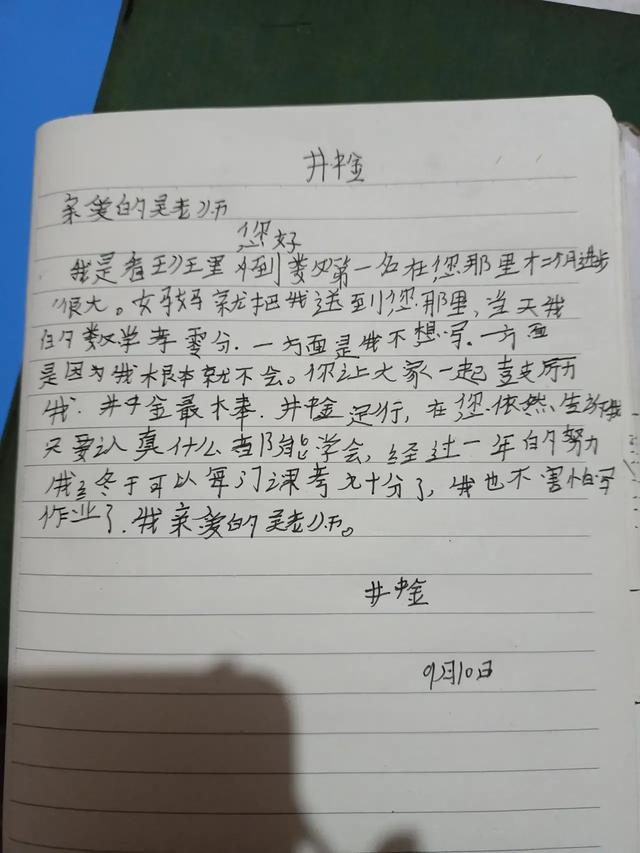 井中金
亲爱的吴老师
您好
我是看到王里考到数第一名在您那里才二个月进步
很大。妈妈就把我送到您那里,当天我
的数学考零分.一方面是我不想写.一方面
是因为我根本就不会。你让大家一起鼓励
我.井中金最棒.井中金行,在您依然
只要认真什么都能学会,经过一年的努力
我终于可以每门课考九十分了,我也不害怕写
作业了.我亲爱的吴老师。
井中金
9月10日